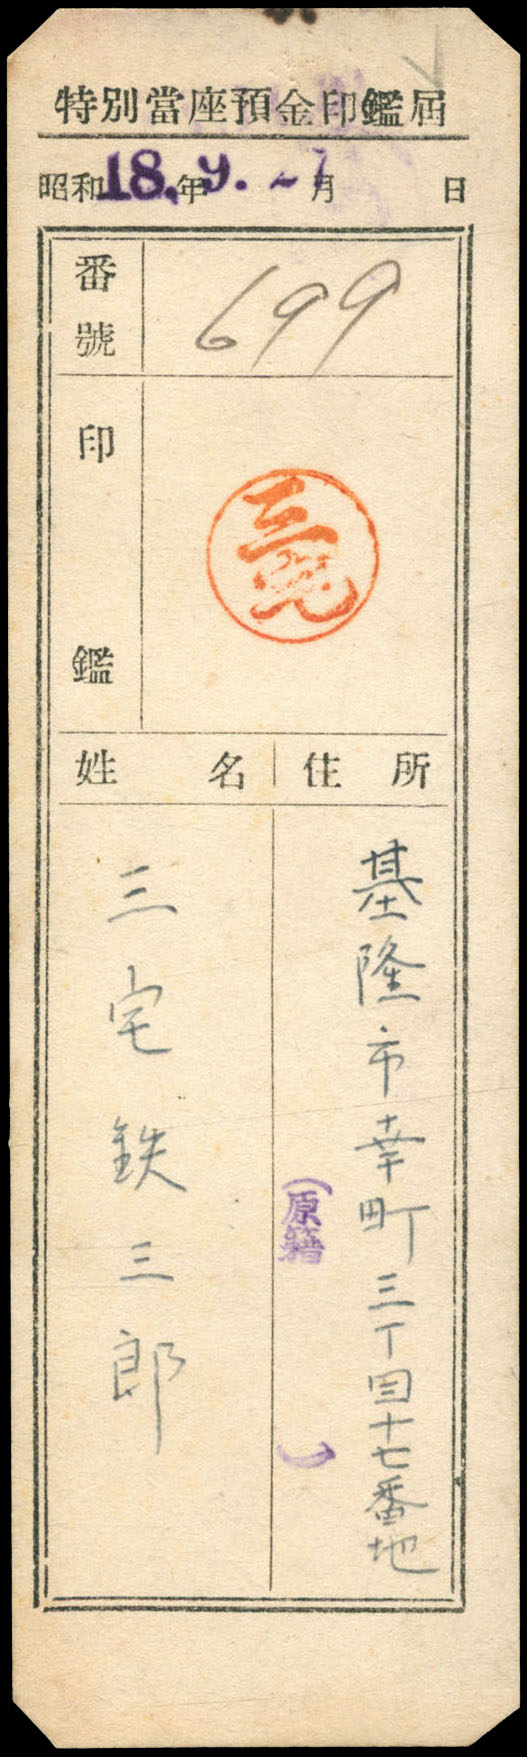 特別當座預金印鑑届
昭和18年9月 日
番號
699
印鑑
三宅
姓名
住所
基隆市幸町三丁目十七番地
(原籍 )
三宅鉄三郎